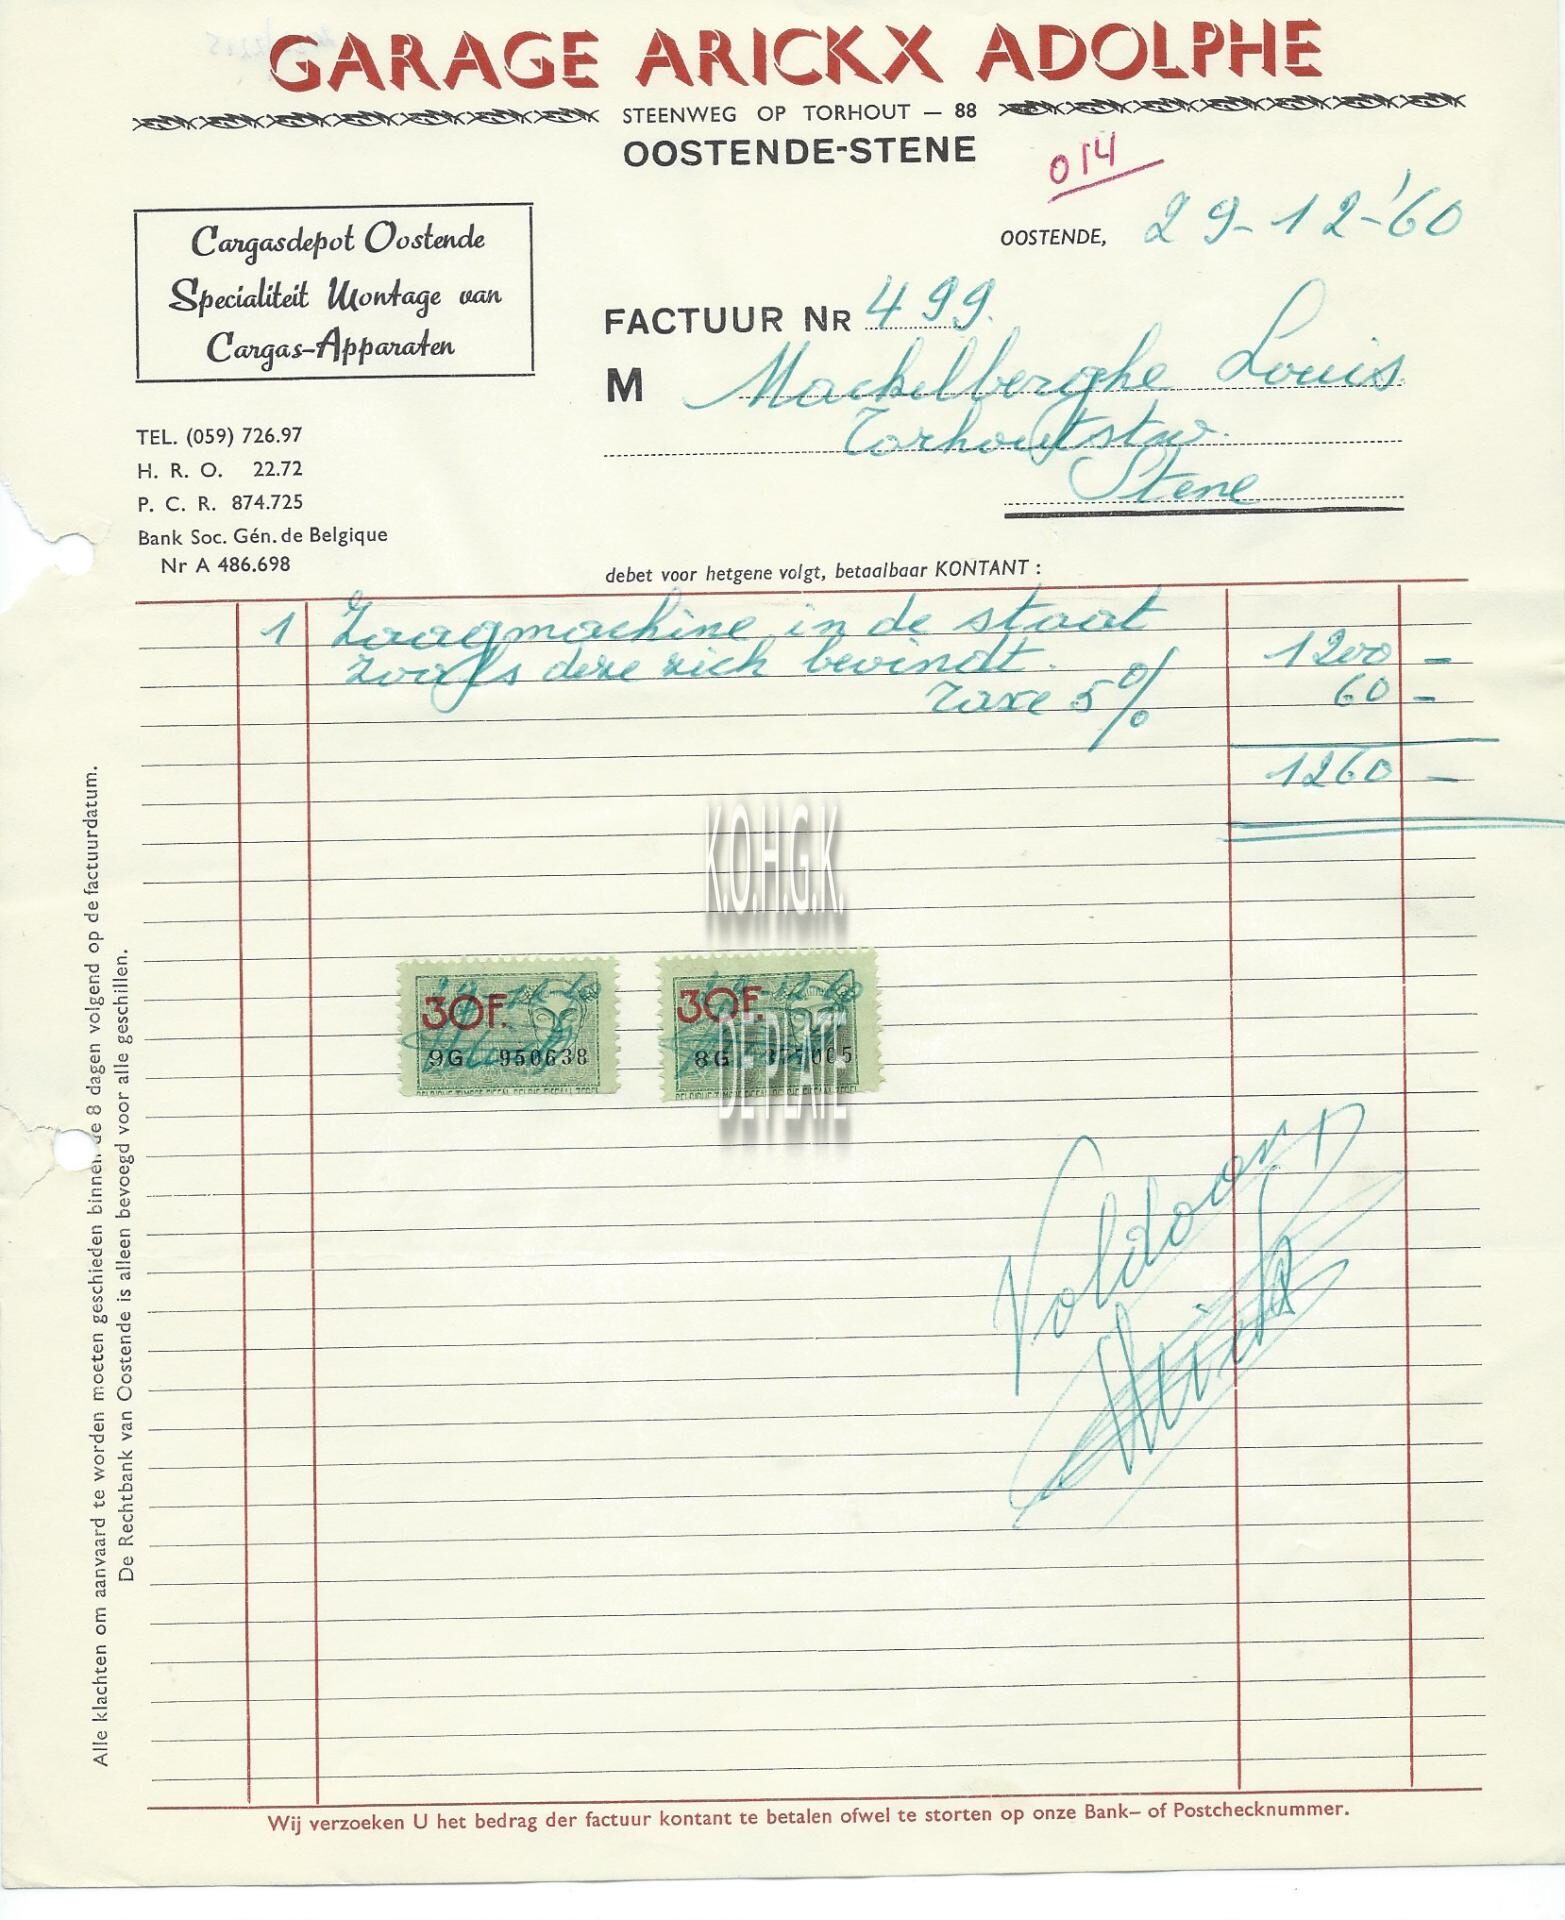 GARAGE ARICKX ADOLPHE
STEENWEG OP TORHOUT — 88
OOSTENDE-STENE
014
OOSTENDE, 29-12-'60
Cargasdepot Oostende
Specialiteit Montage van
Cargas-Apparaten
FACTUUR NR 499.
M Mackelberghe Louis
Torhoutstw.
Stene
TEL. (059) 726.97
H. R. O. 22.72
P. C. R. 874.725
Bank Soc. Gén. de Belgique
Nr A 486.698
debet voor hetgene volgt, betaalbaar KONTANT :
1 Zaagmachine in de staat
zoals deze zich bevindt. 1200 –
Taxe 5% 60 –
1260 –
K.O.H.G.K.
30F.
9G 950638
30F.
8G
DE PLATE
Voldaan
Alle klachten om aanvaard te worden moeten geschieden binnen de 8 dagen volgend op de factuurdatum.
De Rechtbank van Oostende is alleen bevoegd voor alle geschillen.
Wij verzoeken U het bedrag der factuur kontant te betalen ofwel te storten op onze Bank– of Postchecknummer.